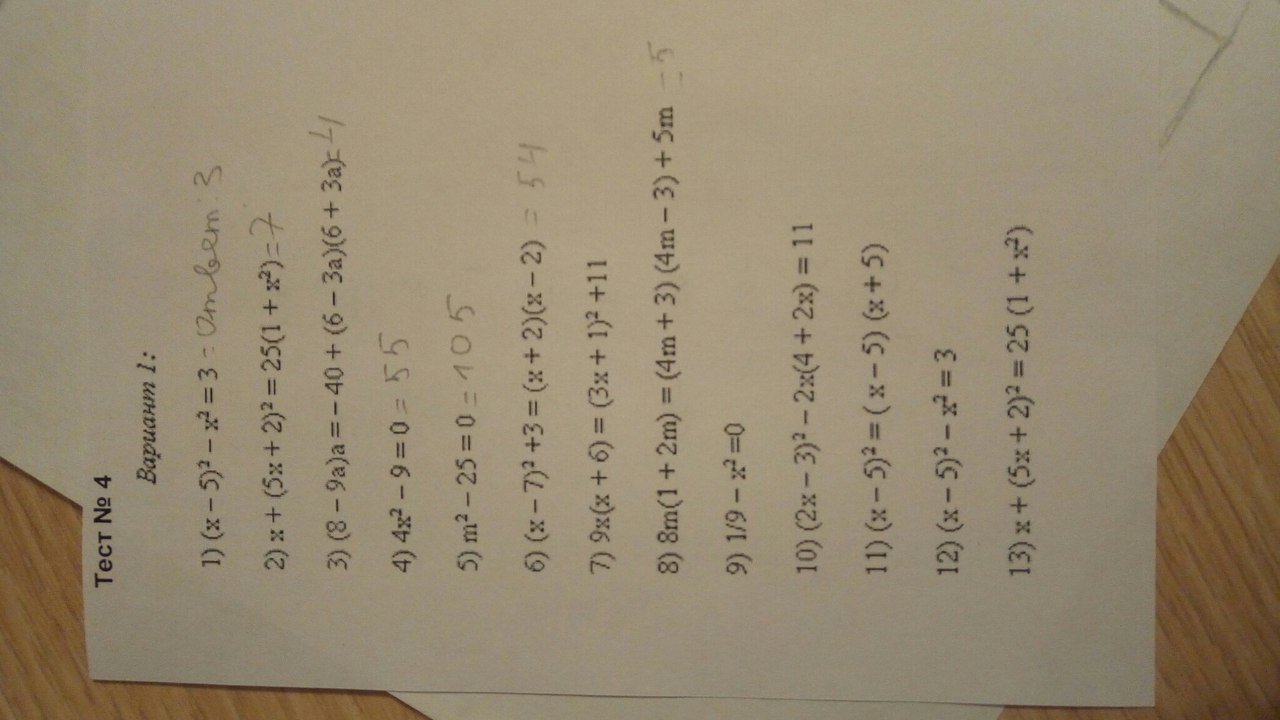 Тест № 4
Вариант 1:
1) (x – 5)² – x² = 3 = ответ: 3
2) x + (5x + 2)² = 25(1 + x²) = 7
3) (8 – 9a)a = – 40 + (6 – 3a)(6 + 3a) = 4
4) 4x² – 9 = 0 = 55
5) m² – 25 = 0 = 105
6) (x – 7)² +3 = (x + 2)(x – 2) = 54
7) 9x(x + 6) = (3x + 1)² +11
8) 8m(1 + 2m) = (4m + 3) (4m – 3) + 5m = 5
9) 1/9 – x² =0
10) (2x – 3)² – 2x(4 + 2x) = 11
11) (x – 5)² = ( x – 5) (x + 5)
12) (x – 5)² – x² = 3
13) x + (5x + 2)² = 25 (1 + x²)